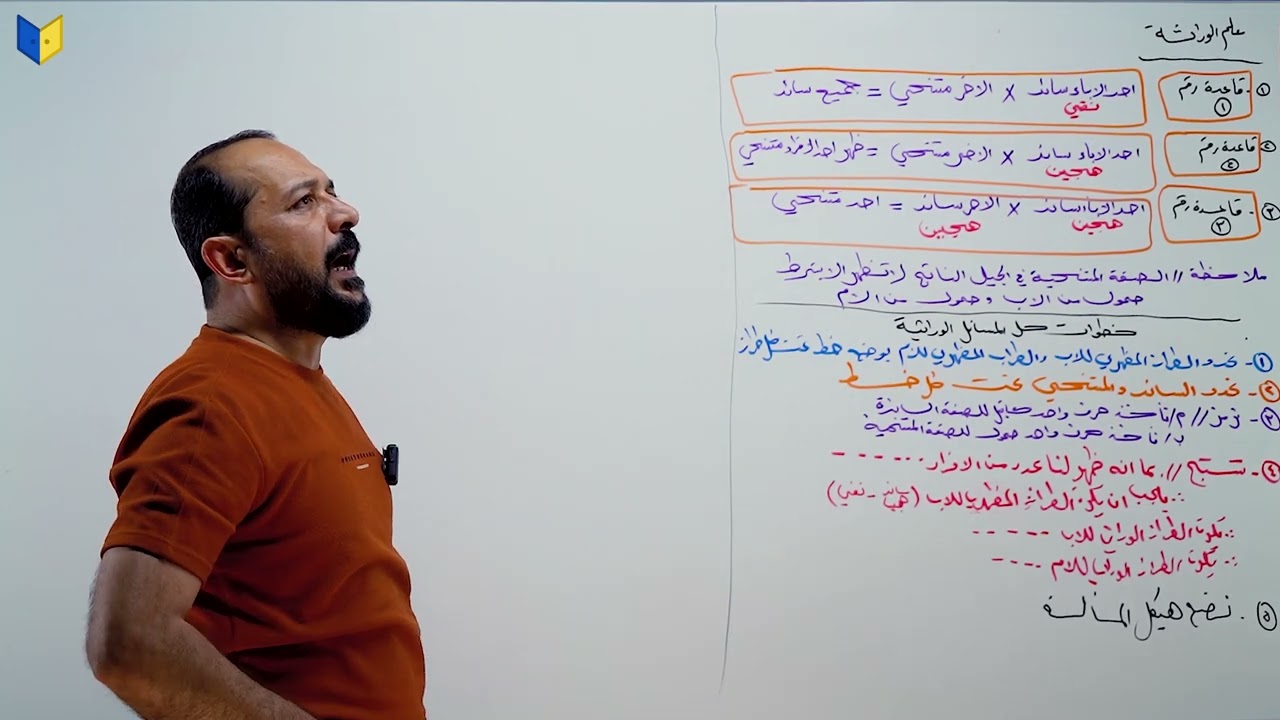 علم الوراثة
① - قاعدة رقم ① احد الاباء سائد نقي × الاخر متنحي = جميع سائد
② قاعدة رقم ② احد الاباء سائد هجين × الاخر متنحي = ظهر احد الافراد متنحي
③ - قاعدة رقم ③ احد الاباء سائد هجين × الاخر سائد هجين = احد متنحي
ملاحظة // الصفة المتنحية في الجيل الناتج لا تظهر الا بشرط
حصولها من الاب وحصولها من الام
خطوات حل المسائل الوراثية
① - نحدد الطراز المظهري للاب والطراز المظهري للام بوضع خط تحت كل طراز
② - نحدد السائد والمتنحي تحت كل خط
③ - نرمز // م/ ناخذ حرف واحد للصفة السائدة
ب/ ناخذ حرف واحد للصفة المتنحية
④ - نستنتج // بما انه ظهر لنا عدد من الافراد ------
∴ يجب ان يكون الطراز للاب (هجين - نقي)
∴ يكون الطراز الوراثي للاب -----
∴ يكون الطراز الوراثي للام ----
⑤ - نضع هيكل المسالة